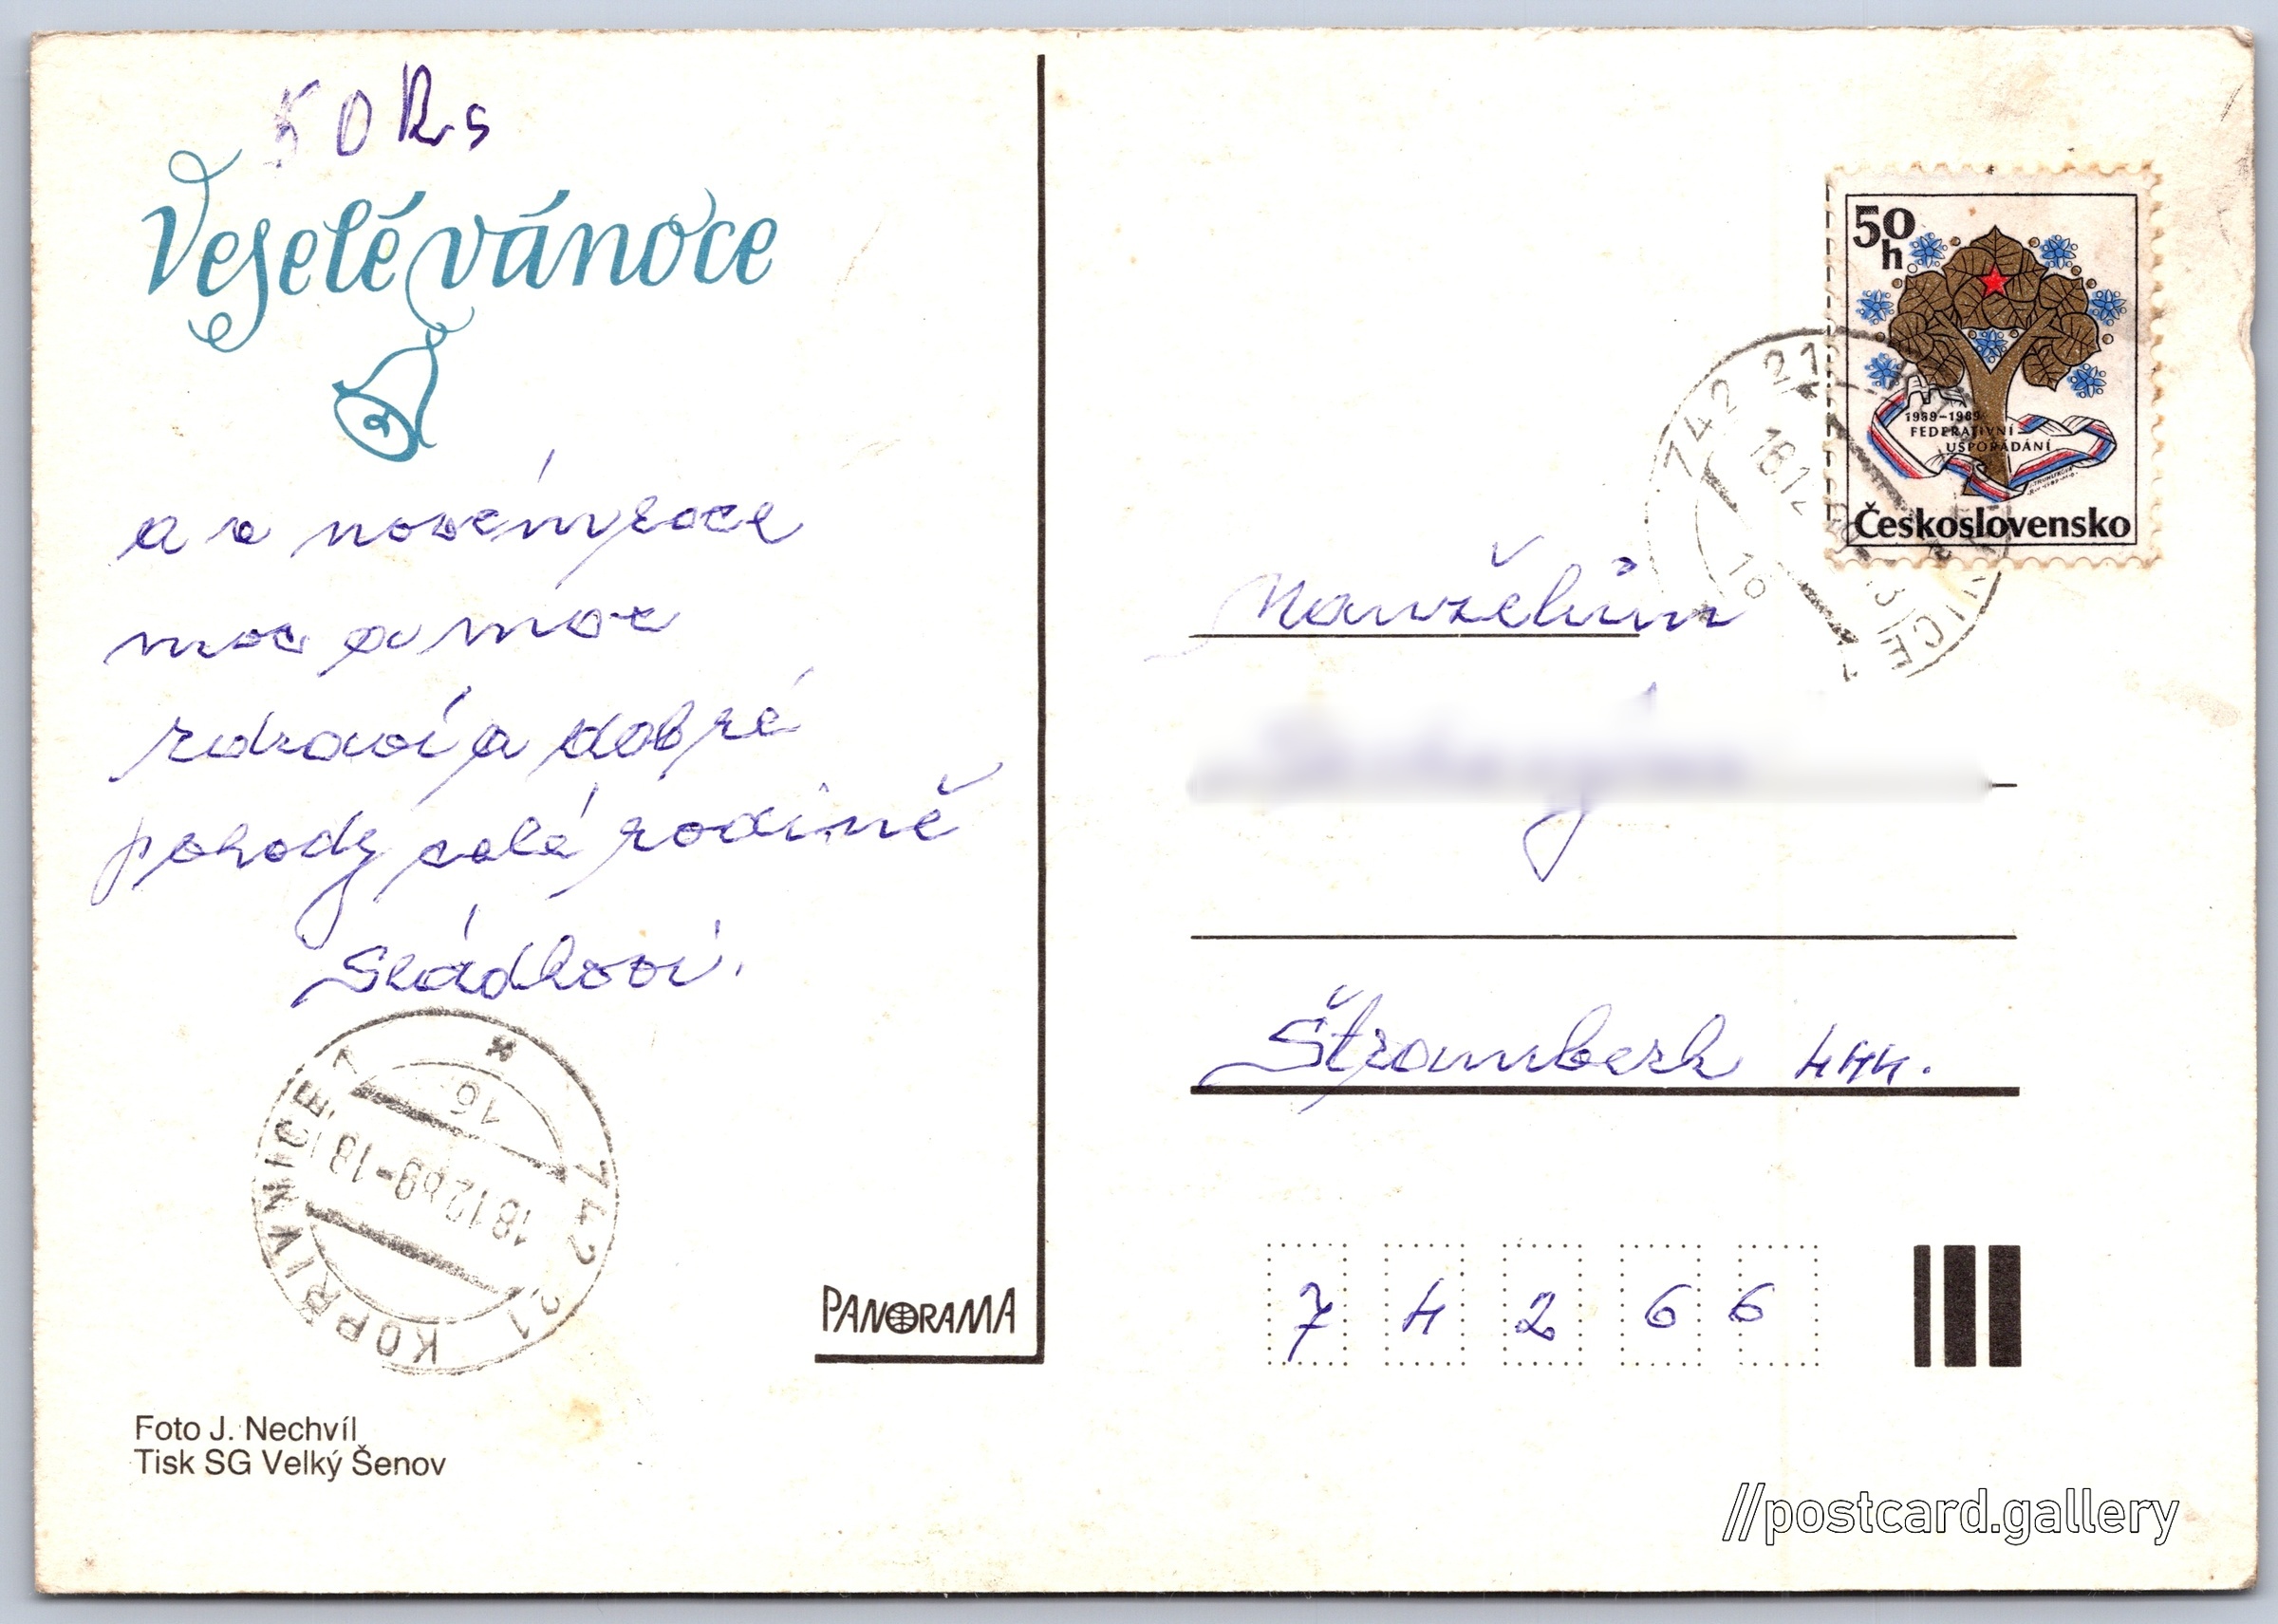 Veselé vánoce
a v novém roce
moc a moc
zdraví a dobré
pohody celé rodině
Sládkovi.
KOPŘIVNICE 1
742 21
18.12.89-18
16
PANORAMA
Foto J. Nechvíl
Tisk SG Velký Šenov
50
h
1969-1989
FEDERATIVNÍ
USPOŘÁDÁNÍ
Československo
742 21
18.12
16
Manželům
Štramberk 444.
7 4 2 6 6
//postcard.gallery